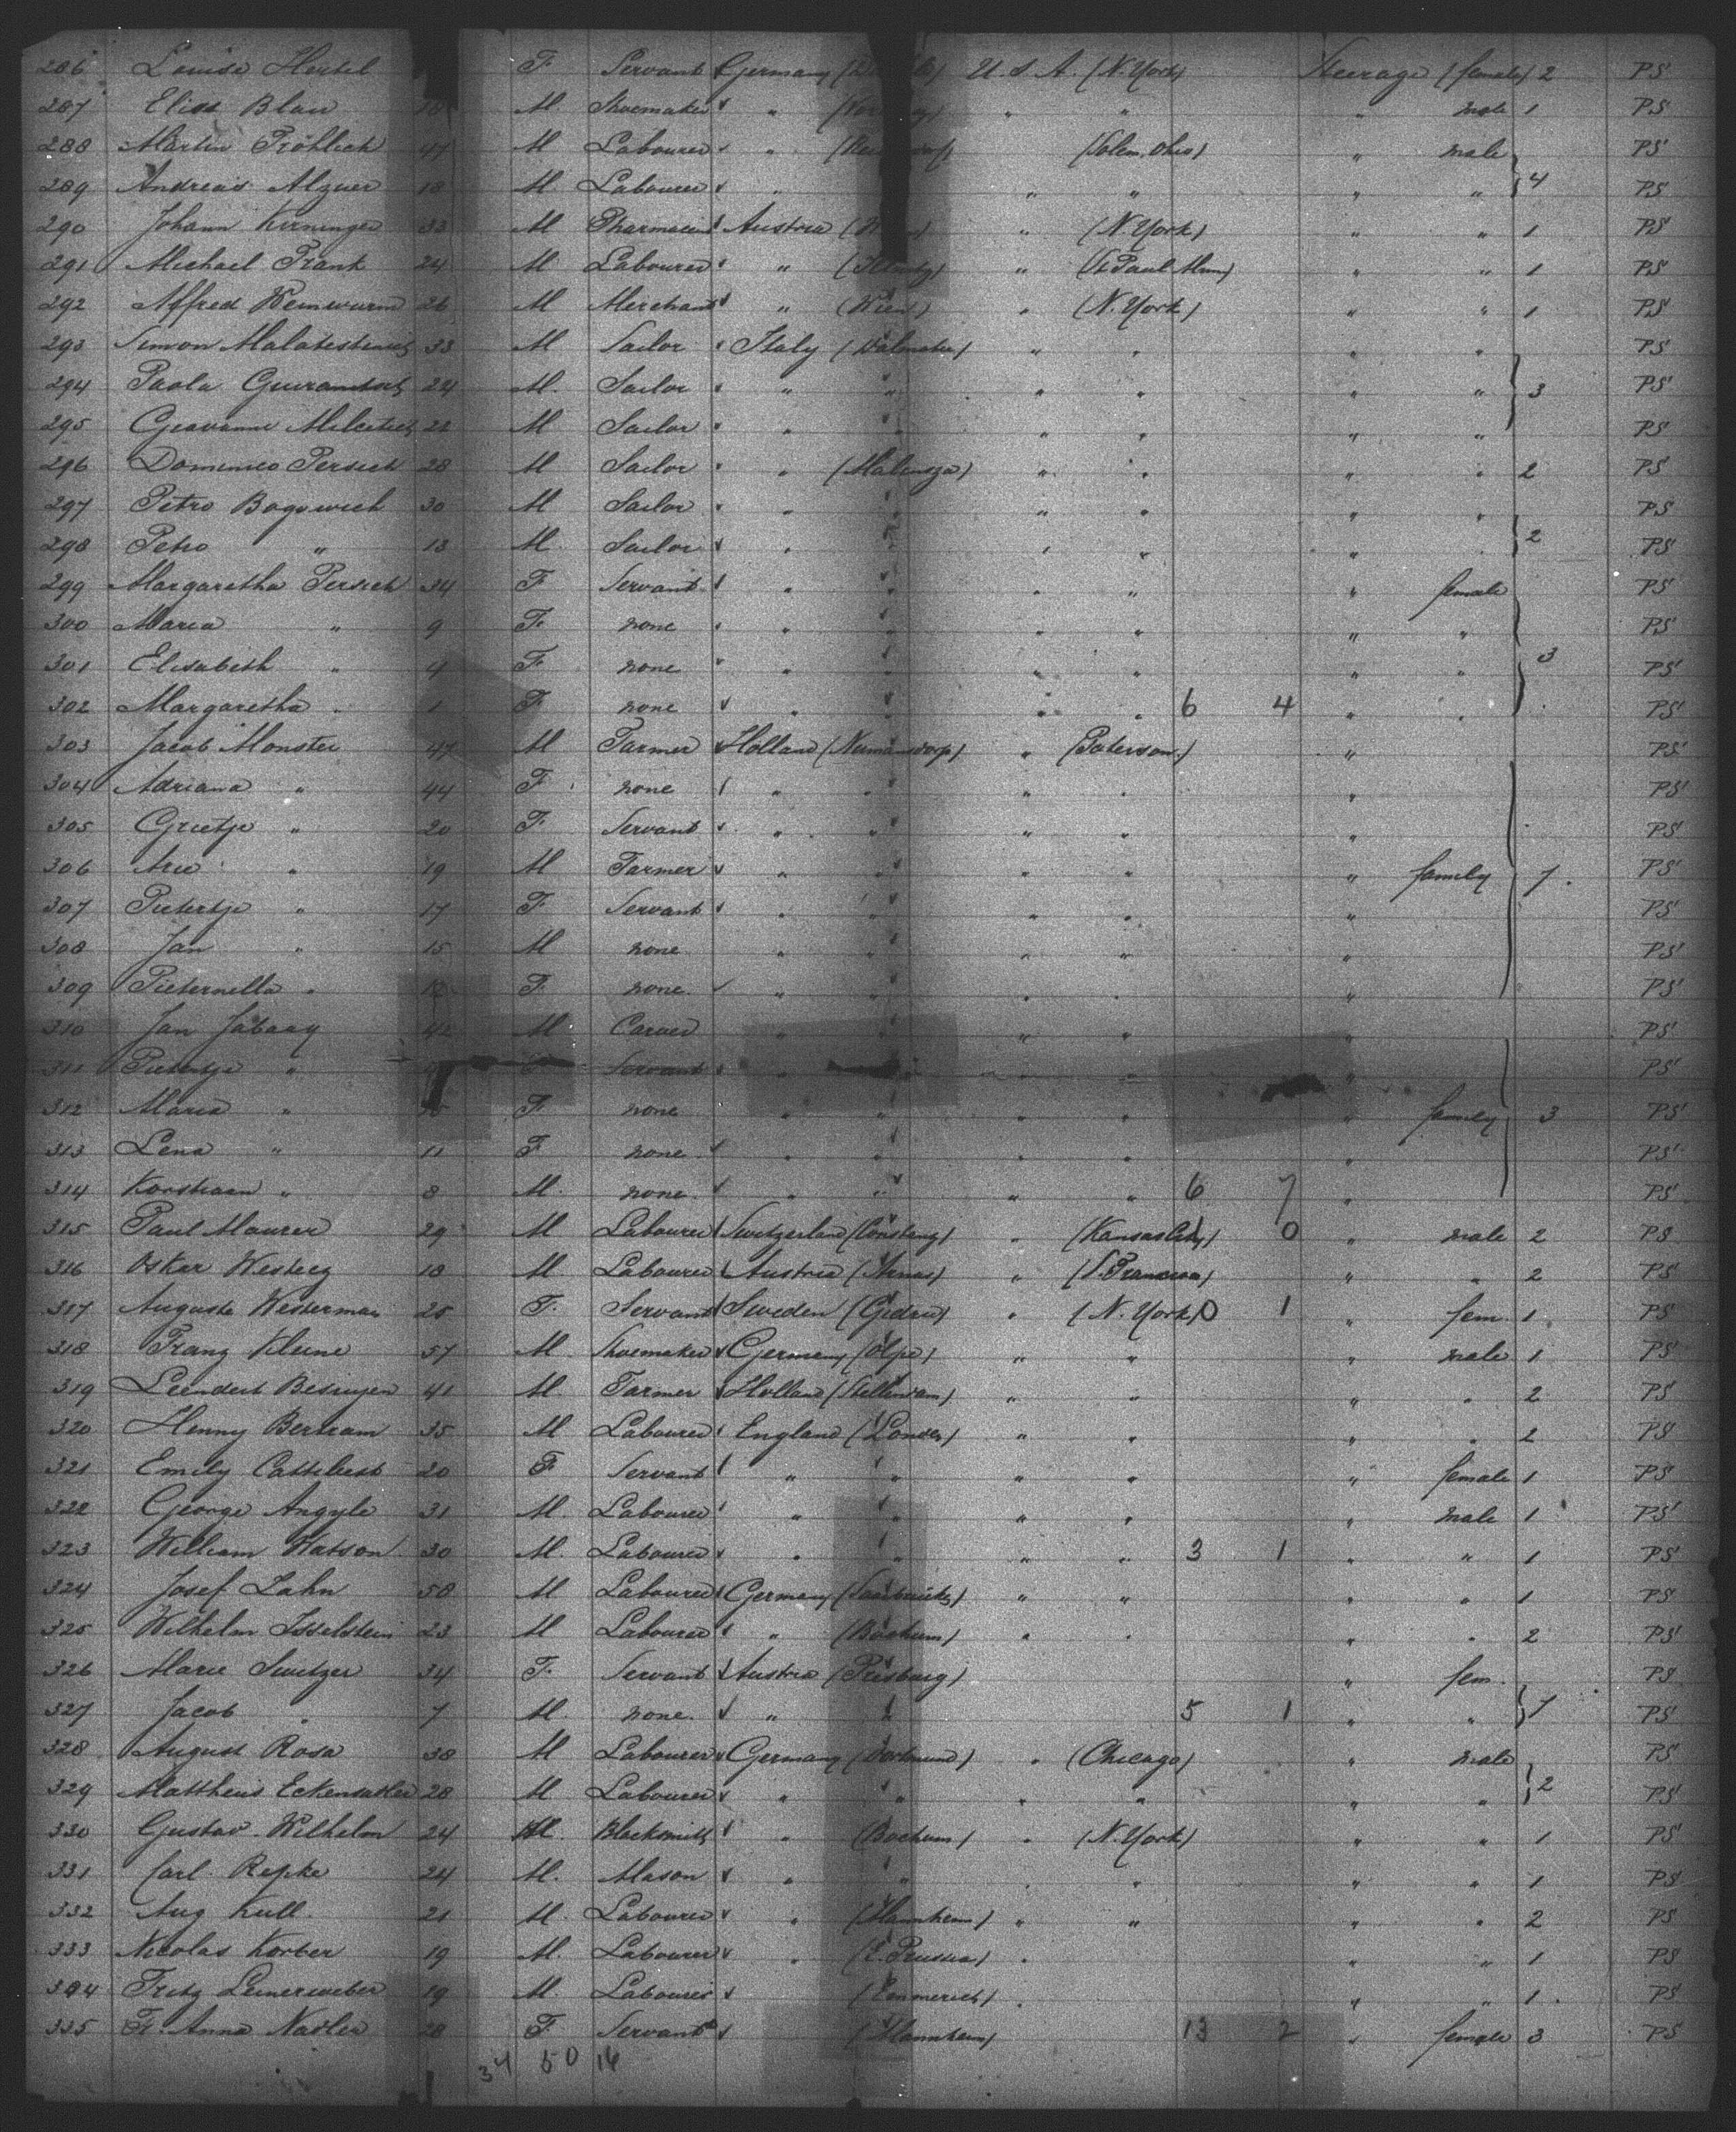 286 Louise Hertel F. Servant Germany U.S.A. (N. York) Steerage (female) 2 PS
287 Elias Blau M. Shoemaker " " " " male 1 PS
288 Martin Fröhlich 47 M Labourer " (Salem, Ohio) " male PS
289 Andreas 18 M Labourer " " " " " 4 PS
290 Johann Kirninger 33 M Pharmacist Austria " (N. York) " " 1 PS
291 Michael Frank 24 M Labourer " " (St Paul Minn) " " 1 PS
292 Alfred Weinwurm 26 M Merchant " (Wien) " (N. York) " " 1 PS
293 Simon 33 M Sailor Italy (Dalmatia) " " " " PS
294 Paola 24 M. Sailor " " " " " " 3 PS
295 Giovanni Milcetich 22 M Sailor " " " " " " PS
296 Domenico Persich 28 M Sailor " " " " " 2 PS
297 Petro 30 M Sailor " " " " " " PS
298 Petro " 13 M. Sailor " " " " " 2 PS
299 Margaretha Persich 34 F Servant " " " " " female PS
300 Maria " 9 F. none " " " " " " PS
301 Elisabeth " 4 F. none " " " " " " 3 PS
302 Margaretha " 1 F none " " " " 6 4 " " PS
303 Jacob Monster 47 M Farmer Holland (Numansdorp) " (Paterson.) " PS
304 Adriana " 44 F none " " " " " PS
305 Grietje " 20 F. Servant " " " " " PS
306 Arie " 19 M Farmer " " " " " family 7. PS
307 Pietertje " 17 F Servant " " " " " PS
308 Jan " 15 M none " " " " " PS
309 Pieternella " 12 F. none " " " " " PS
310 Jan Jabaay 42 M. Carver " " " " " PS
311 Pietertje " F Servant " " " " " PS
312 Maria " F. none " " " " " family 3 PS
313 Lena " 11 F none " " " " " PS
314 Korstiaan " 8 M. none " " " " 6 7 " PS
315 Paul Maurer 29 M Labourer Switzerland " (Kansas City) 0 " male 2 PS
316 Oskar 18 M. Labourer Austria " (S. Francisco) " " 2 PS
317 Augusta Westerman 25 F. Servant Sweden " (N. York) 0 1 " fem. 1 PS
318 Franz Kleine 57 M. Shoemaker Germany (Olpe) " " " male 1 PS
319 Leendert 41 M. Farmer Holland (Stellendam) " " " " 2 PS
320 Henny Bertram 35 M Labourer England (London) " " " " 2 PS
321 Emily 20 F Servant " " " " " female 1 PS
322 George Argyle 31 M. Labourer " " " " " male 1 PS
323 William Watson 30 M. Labourer " " " " 3 1 " " 1 PS
324 Josef Zahn 58 M Labourer Germany (Saarbrücken) " " " " 1 PS
325 Wilhelm Isselstein 23 M Labourer " (Bochum) " " " " 2 PS
326 Marie Switzer 34 F. Servant Austria (Presburg) " fem. PS
327 Jacob " 7 M. none. " " 5 1 " " 1 PS
328 August Rosa 38 M Labourer Germany (Dortmund) " (Chicago) " male PS
329 Mattheus 28 M. Labourer " " " " " " 2 PS
330 Gustav. Wilhelm 24 M. Blacksmith " (Bochum) " (N. York) " " 1 PS
331 Carl Repke 24 M. Mason " " " " " " 1 PS
332 Aug Kull 21 M. Labourer " (Mannheim) " " " " 2 PS
333 Nicolas Korber 19 M. Labourer " (E. Prussia) " " " 1 PS
334 Fritz Leinerweber 19 M. Labourer (Emmerich) " " " 1. PS
335 Fr. Anna Nadler 28 F Servant (Mannheim) 13 2 " female 3 PS
34 50 16